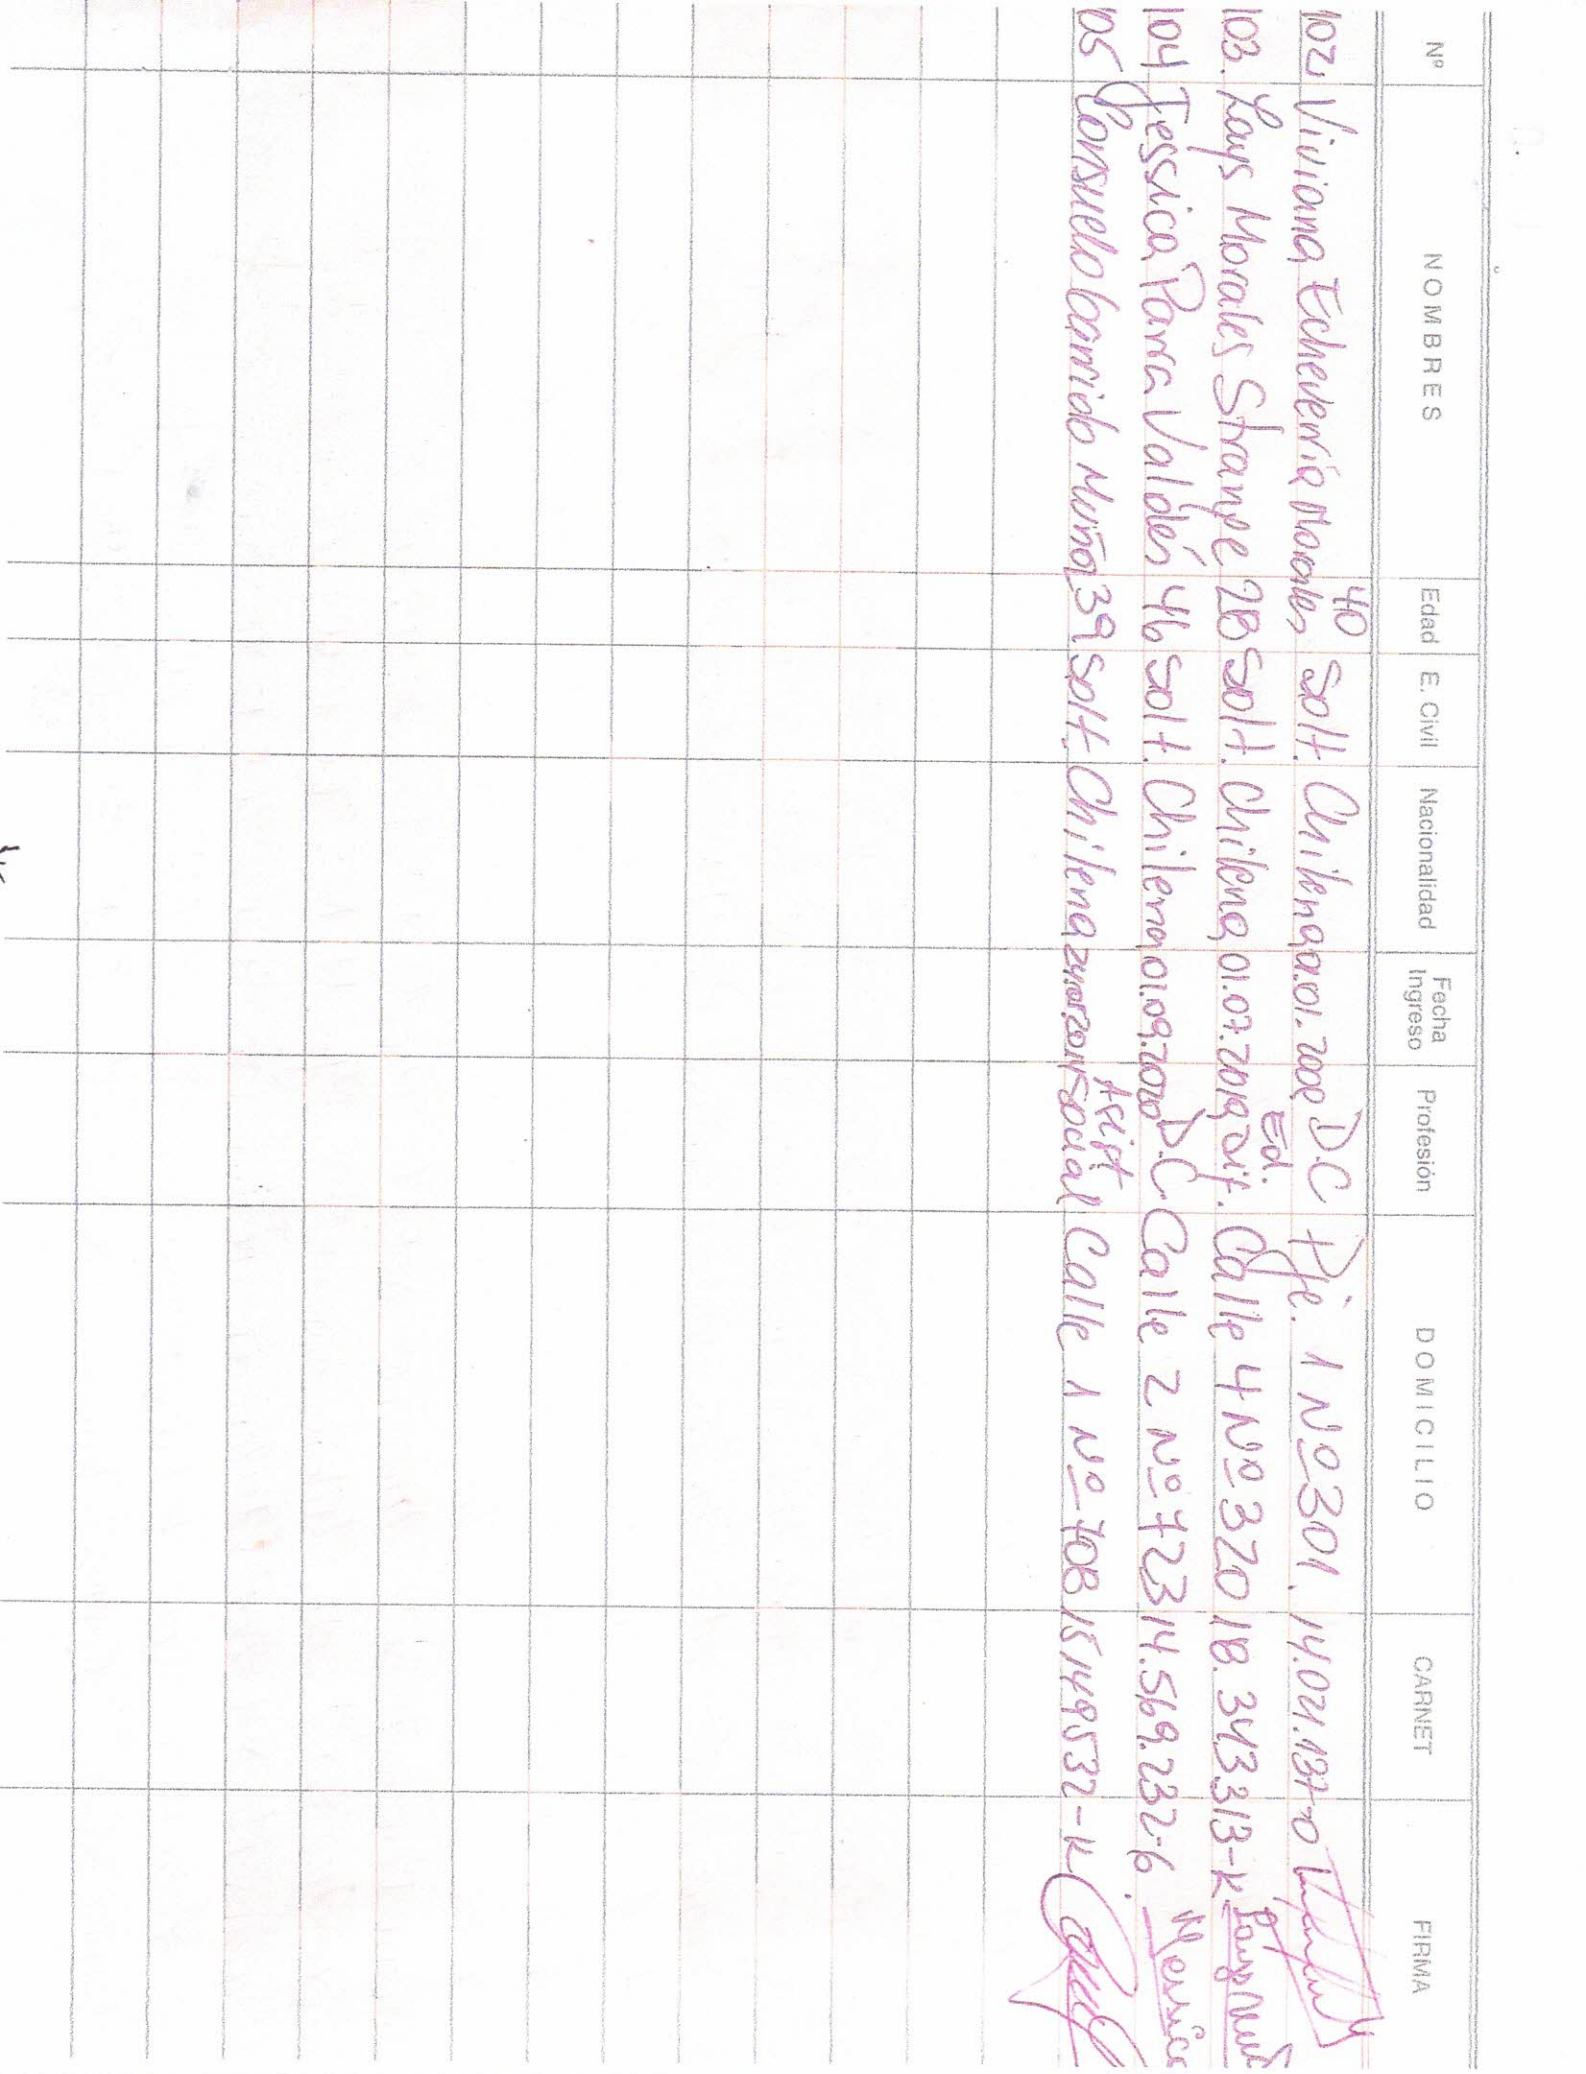 Nº NOMBRES Edad E. Civil Nacionalidad Fecha Ingreso Profesión DOMICILIO CARNET FIRMA
102. Viviana Echeverría Morales 40 Solt. Chilena 01.01.2009 D.C Pje. 1 Nº 301. 14.021.137-0
103. Lays Morales Strange 28 Solt. Chilena 01.07.2019 Ed. Dif. Calle 4 Nº 320 18.343.313-K
104 Jessica Parra Valdés 46 Solt. Chilena 01.09.2020 D.C. Calle 2 Nº 723 14.569.232-6. Jessica
105 Consuelo Garrido Muñoz 39 Solt. Chilena Asist social Calle 1 Nº 708 15149532-K